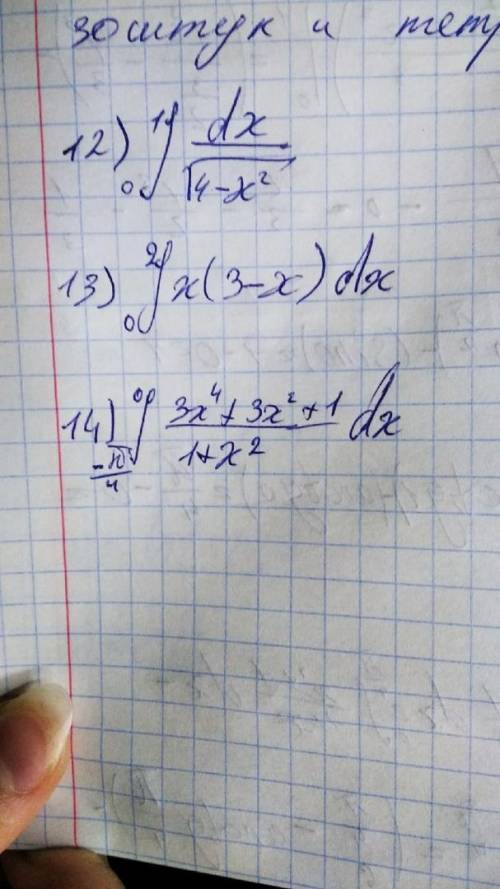 зоштук и тет
12) ∫₀¹ dx/√(4-x²)
13) ∫₀² x(3-x) dx
14) ∫_{-π/4}^0 (3x⁴+3x²+1)/(1+x²) dx